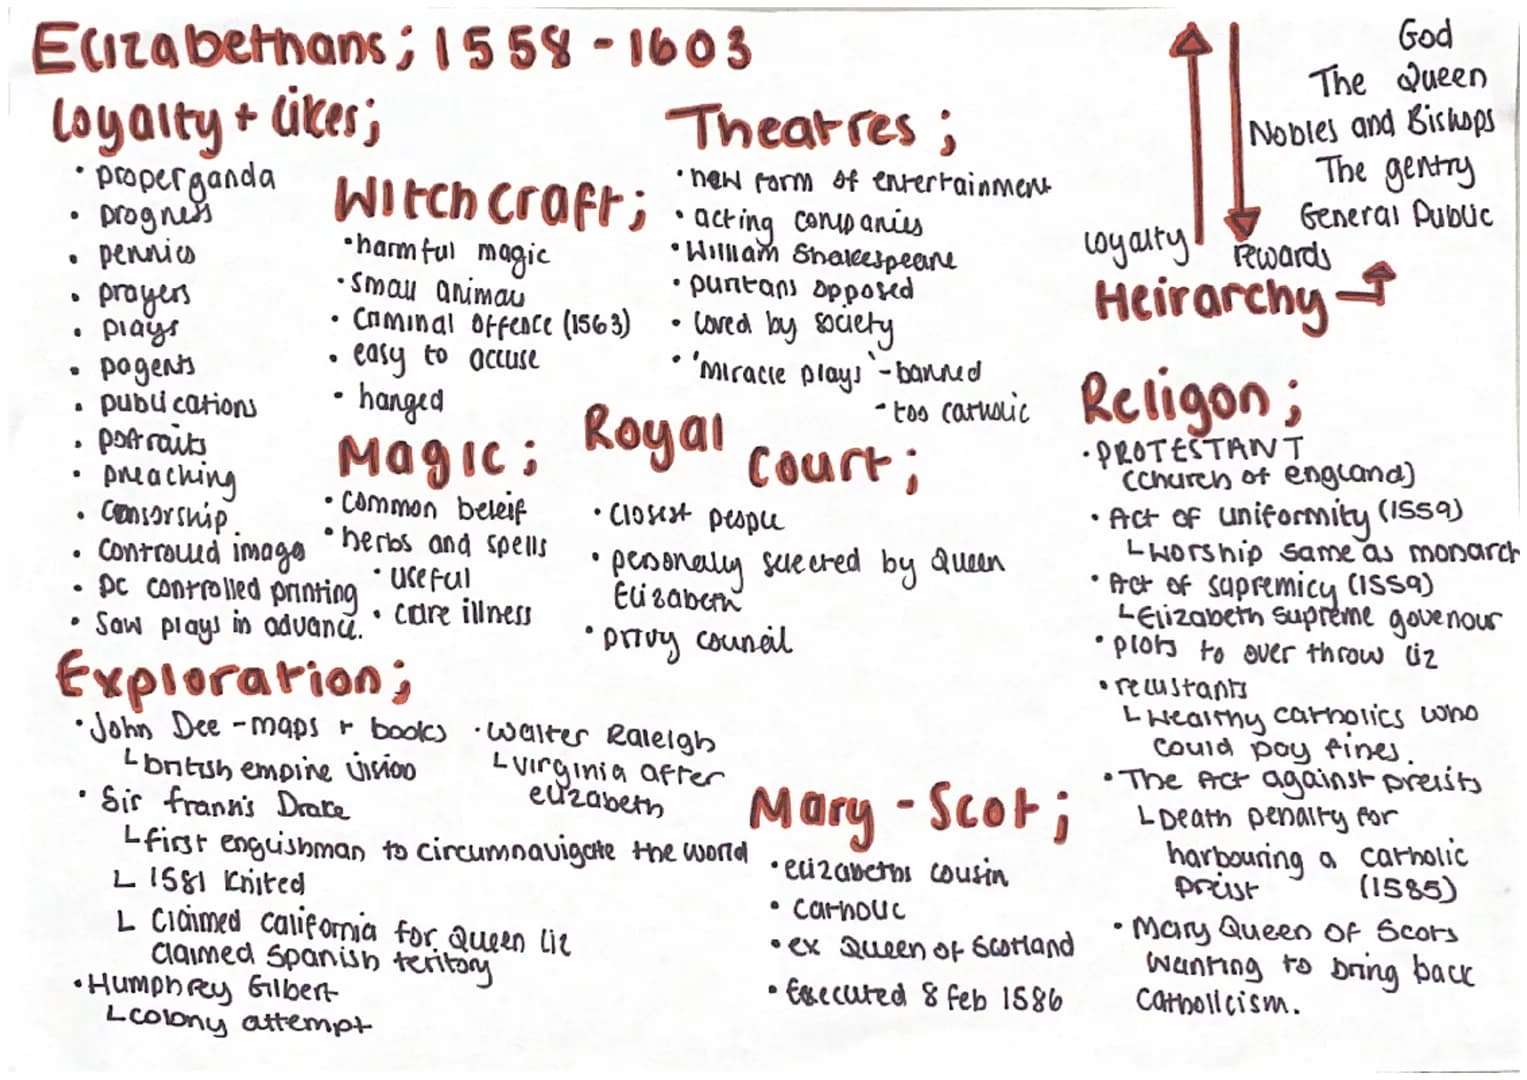 Elizabethans; 1558 - 1603
Loyalty + Likes;
• properganda
• progress
• pennies
• prayers
• plays
• pagents
• publications
• portraits
• preaching
• censorship
• controlled image
• PC controlled printing
• Saw plays in advance.
Witchcraft;
• harmful magic
• small animal
• Criminal offence (1563)
• easy to accuse
• hanged
Magic;
• common beleif
• herbs and spells
• useful
• cure illness
Theatres;
• new form of entertainment
• acting companies
• William Shakespeare
• puritans opposed
• loved by society
• 'Miracle plays' - banned
- too catholic
Royal Court;
• closest people
• personally selected by Queen
Elizabeth
• privy council
God
The Queen
Nobles and Bishops
The gentry
General Public
loyalty
rewards
Heirarchy
Religon;
• PROTESTANT
(Church of england)
• Act of uniformity (1559)
worship same as monarch
• Act of supremicy (1559)
Elizabeth supreme govenour
• plots to over throw liz
• recustants
Wealthy catholics who
could pay fines.
• The Act against preists
Death penalty for
harbouring a catholic
preist (1585)
• Mary Queen of Scots
wanting to bring back
catholicism.
Exploration;
• John Dee - maps + books
british empire vision
• Sir frannis Drake
first englishman to circumnavigate the world
1581 Knited
Claimed California for Queen liz
claimed Spanish teritory
• Humphrey Gilbert
colony attempt
• Walter Raleigh
virginia after
elizabeth
Mary - Scot;
• elizabeths cousin
• catholic
• ex Queen of Scotland
• Executed 8 feb 1586